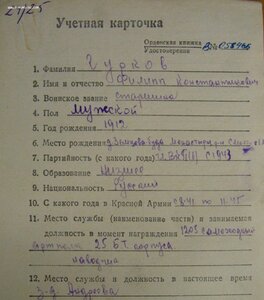 21/25
Учетная карточка
Орденская книжка
Удостоверение № 058966
1. Фамилия Гурков
2. Имя и отчество Филипп Константинович
3. Воинское звание старшина
4. Пол мужской
5. Год рождения 1912
6. Место рождения
7. Партийность (с какого года) 1943
8. Образование низшее
9. Национальность русский
10. С какого года в Красной Армии
11. Место службы (наименование части) и занимаемая
должность в момент награждения 1203 самоходный
артполк 25 б.т. корпуса
наводчик
12. Место службы и должность в настоящее время
з-д Андреева